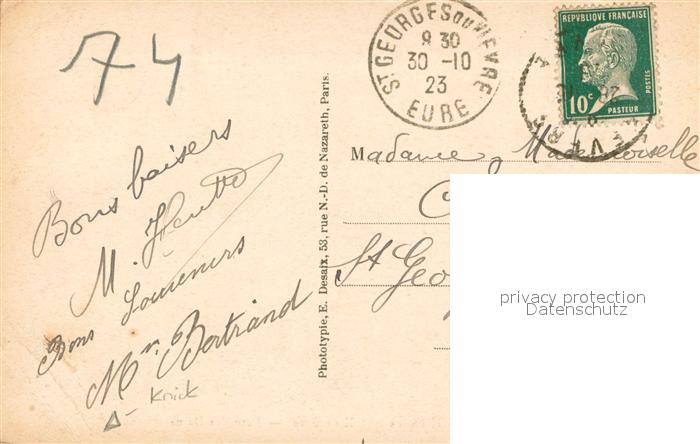 74
ST GEORGES DU VIEVRE
8 30
30 -10
23
EURE
REPUBLIQUE FRANÇAISE
POSTES
10c
PASTEUR
Madame Mademoiselle
St Geo
privacy protection
Datenschutz
Phototypie, E. Desaix, 53, rue N.-D. de Nazareth, Paris.
Bons baisers
M.
Bons Souvenirs
Mn Bertrand
Knick